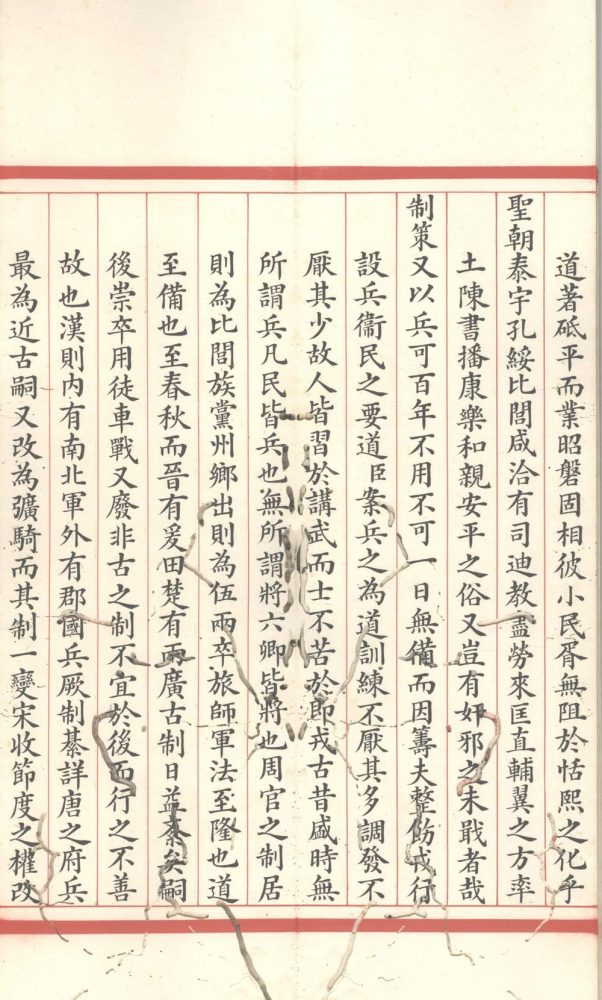 道著砥平而業昭磐固相彼小民胥無阻於恬熙之化乎
聖朝泰宇孔綏比閭咸洽有司迪教盡勞來匡直輔翼之方率
土陳書播康樂和親安平之俗又豈有奸邪之未戢者哉
制策又以兵可百年不用不可一日無備而因籌夫整飭戎行
設兵衞民之要道臣案兵之為道訓練不厭其多調發不
厭其少故人皆習於講武而士不苦於即戎古昔盛時無
所謂兵凡民皆兵也無所謂將六卿皆將也周官之制居
則為比閭族黨州鄉出則為伍兩卒旅師軍法至隆也道
至備也至春秋而晉有爰田楚有兩廣古制日益紊矣嗣
後崇卒用徒車戰又廢非古之制不宜於後而行之不善
故也漢則內有南北軍外有郡國兵厥制綦詳唐之府兵
最為近古嗣又改為彍騎而其制一變宋收節度之權改